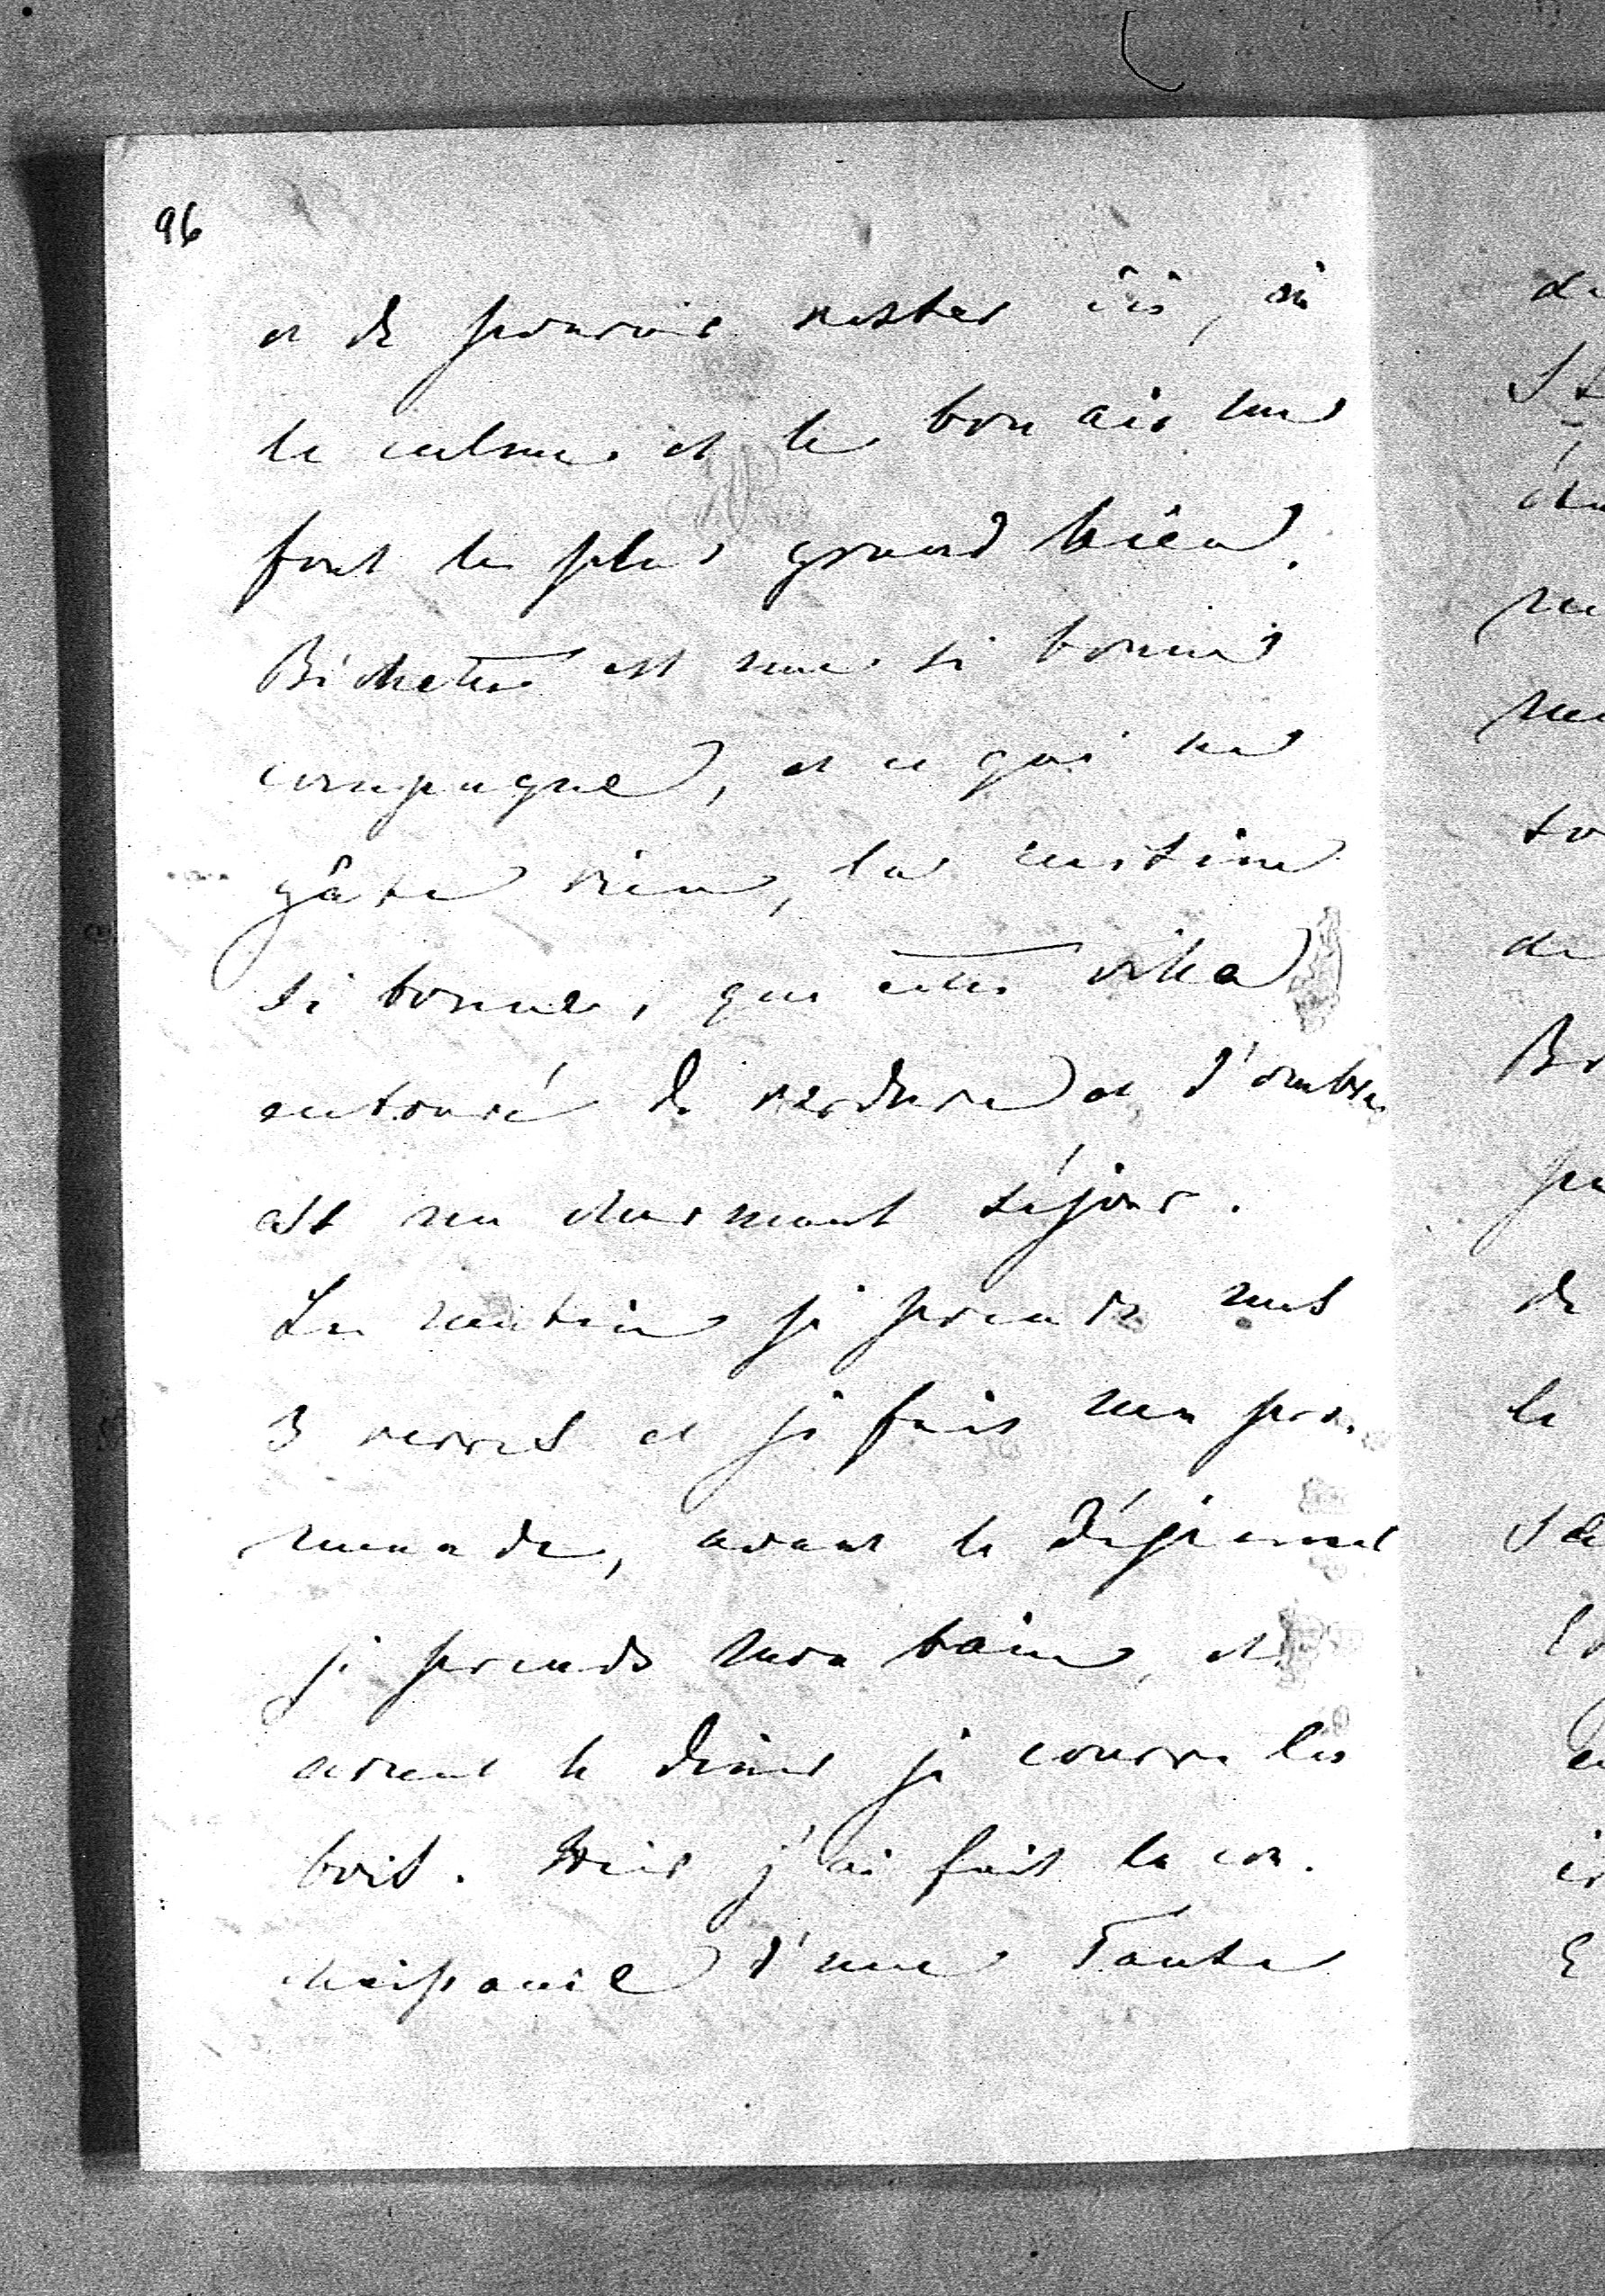 96
et de pouvoir rester ici, où
le calme et le bon air me
font le plus grand bien.
Bichette est une si bonne
compagne, et ce qui ne
gâte rien, la cuisine
si bonne, que cette villa
entouré de verdure et d'ombre
est un charmant séjour.
Le matin je prends mes
3 verres et je fais ma pro-
menade, avant le déjeuner
je prends mon bain, et
avant le diner je courre les
bois. Hier j'ai fait la con-
naissance d'une Tante